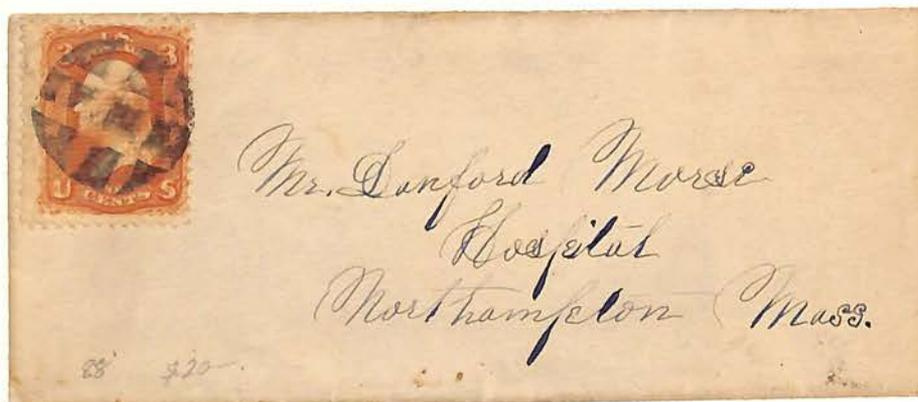 3 3
U S
CENTS
Mr. Sanford Morse
Hospital
Northampton Mass.
88 $20—